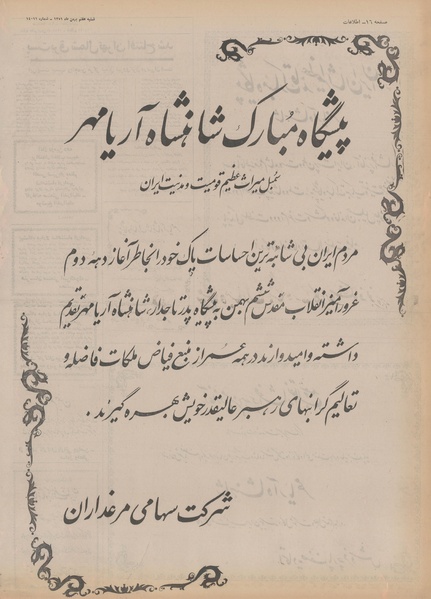 صفحه ۱۶ـ اطلاعات
پیشگاه مبارک شاهنشاه آریامهر
سمبل میراث عظیم قومیت و مدنیت ایران
مردم ایران بی شائبه ترین احساسات پاک خود را بخاطر آغاز دهه دوم
غرورآمیز انقلاب مقدس ششم بهمن به پیشگاه پدر تاجدار، شاهنشاه آریامهر تقدیم
داشته و امیدوارند در همه عمر از منبع فیاض ملکات فاضله و
تعالیم گرانبهای رهبر عالیقدر خویش بهره گیرند .
شرکت سهامی مرغداران